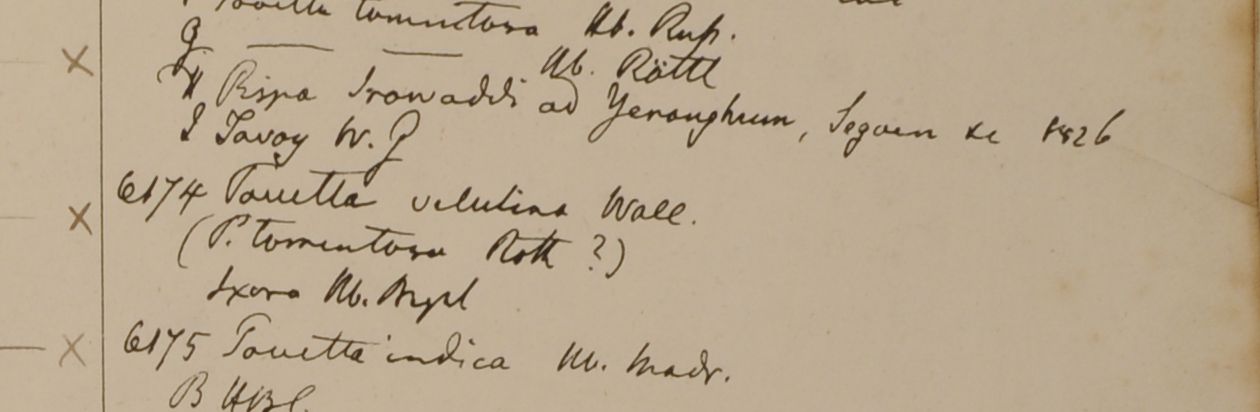 Pavetta tomentosa Hb. Russ.
G — — Hb. Röttl
H Ripa Irawaddi ad Yenanghum, Segaen &c 1826
I Tavoy W. G
6174 Pavetta velutina Wall.
(P. tomentosa Roth ?)
Ixora Hb.
6175 Pavetta indica Hb. Madr.
B HBC.